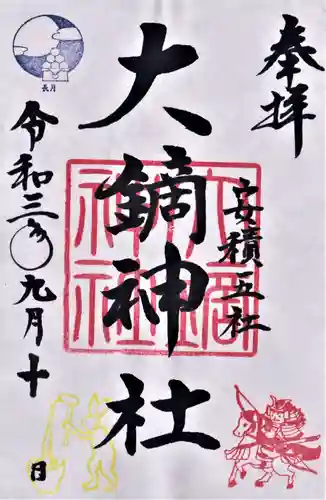 奉拝
安積五社
大鏑神社
長月
令和三年九月十日